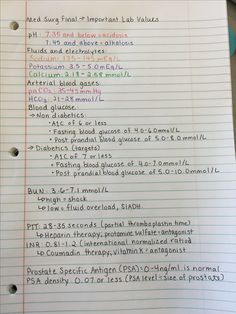 Med Surg Final → Important Lab Values
pH: 7.35 and below = acidosis
7.45 and above = alkalosis
Fluids and electrolytes:
Sodium: 135-145 mEq/L
Potassium: 3.5-5.0 mEq/L
Calcium: 2.18-2.58 mmol/L
Arterial blood gases:
paCO₂: 35-45 mm Hg
HCO₃: 21-28 mmol/L
Blood glucose:
→ Non diabetics:
• A1C of 6 or less
• Fasting blood glucose of 4.0-6.0 mmol/L
• Post prandial blood glucose of 5.0-8.0 mmol/L
→ Diabetics (targets):
• A1C of 7 or less
• Fasting blood glucose of 4.0-7.0 mmol/L
• Post prandial blood glucose of 5.0-10.0 mmol/L
BUN: 3.6-7.1 mmol/L
↳ high = shock
↳ low = fluid overload, SIADH
PTT: 28-35 seconds (partial thromboplastin time)
↳ Heparin therapy; protamine sulfate = antagonist
INR: 0.81-1.2 (international normalized ratio)
↳ Coumadin therapy; vitamin K = antagonist
Prostate Specific Antigen (PSA): 0-4 ng/ml is normal
PSA density: 0.07 or less (PSA level ÷ size of prostate)